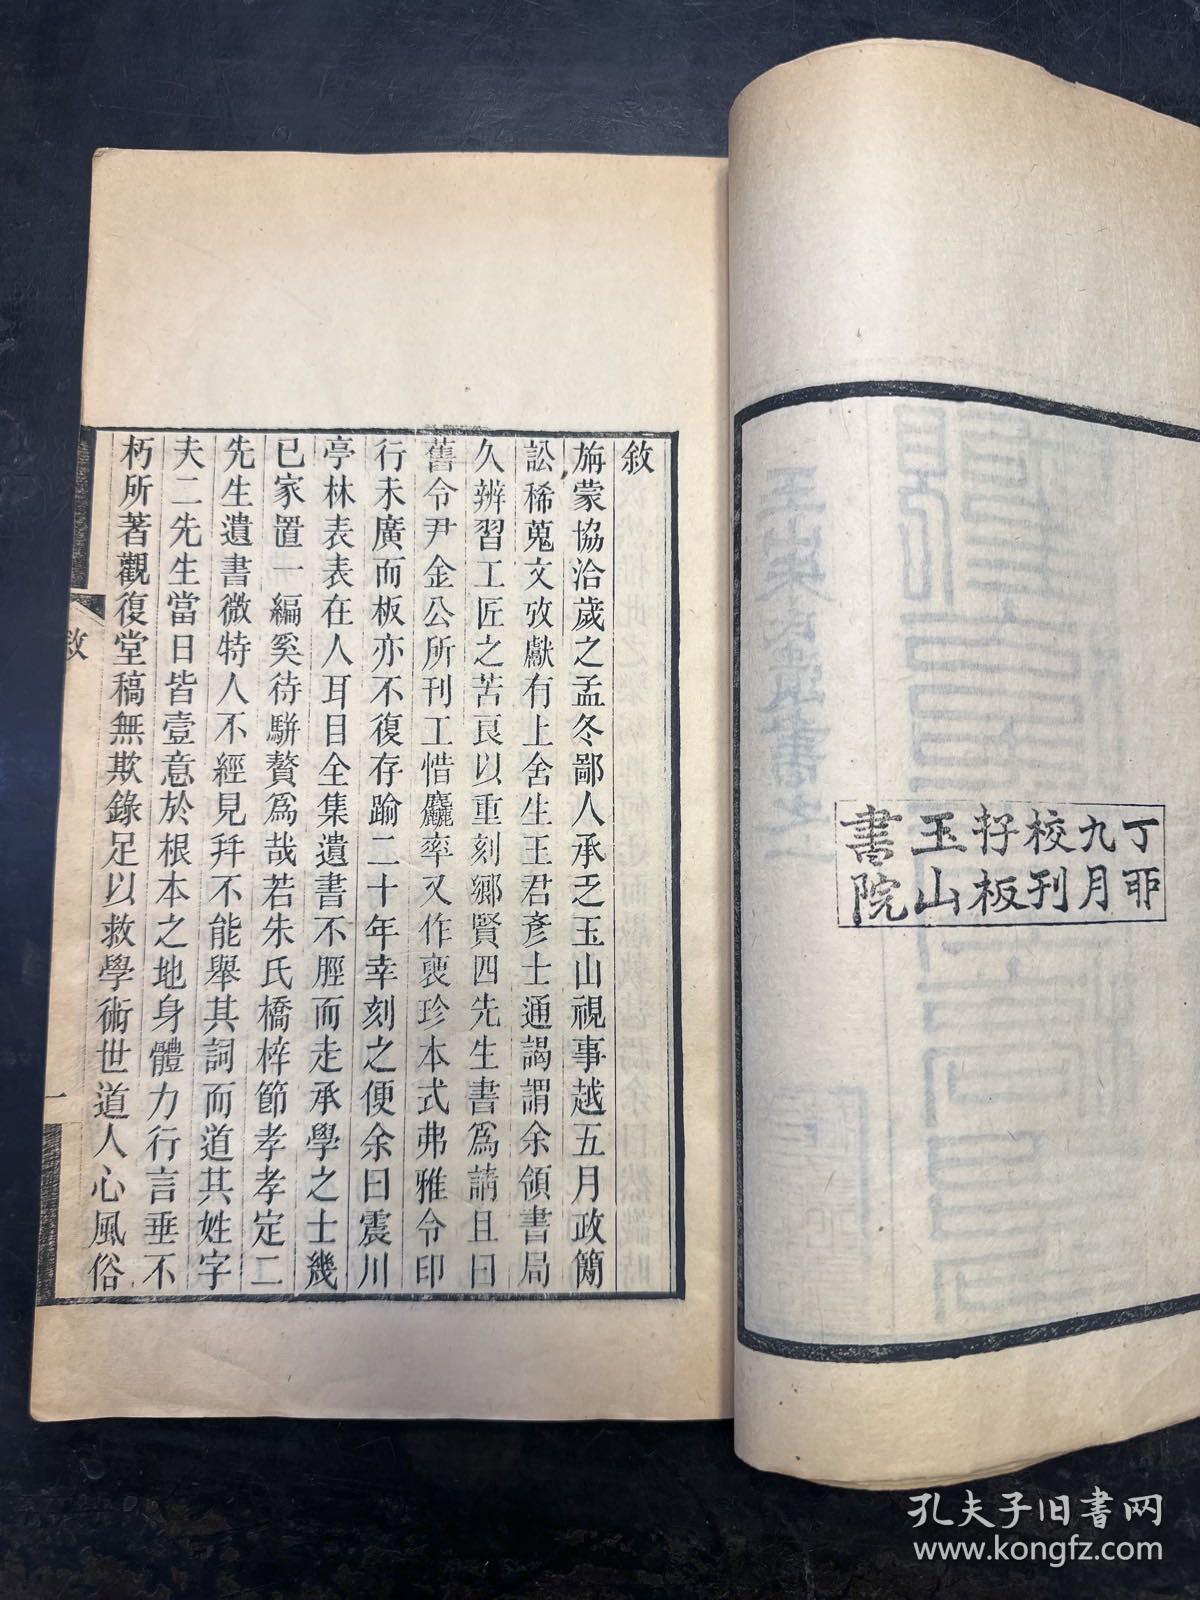 丁丣
九月
校刊
板
玉山
書院
敘
旃蒙協洽歲之孟冬鄙人承乏玉山視事越五月政簡
訟稀蒐文攷獻有上舍生王君彥士通謁謂余領書局
久辨習工匠之苦良以重刻鄉賢四先生書爲請且曰
舊令尹金公所刊工惜麤率又作褎珍本式弗雅令印
行未廣而板亦不復存踰二十年幸刻之便余曰震川
亭林表表在人耳目全集遺書不脛而走承學之士幾
已家置一編奚待駢贅爲哉若朱氏橋梓節孝孝定二
先生遺書微特人不經見幷不能舉其詞而道其姓字
夫二先生當日皆壹意於根本之地身體力行言垂不
朽所著觀復堂稿無欺錄足以救學術世道人心風俗
敘
一
孔夫子旧书网
www.kongfz.com